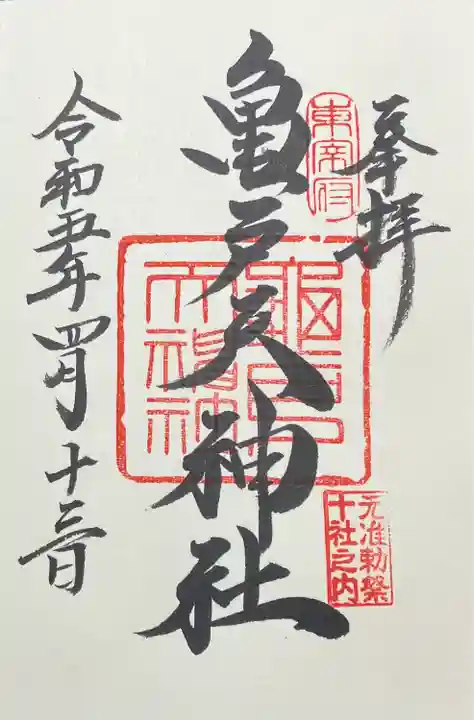 奉拝
東宰府
元准勅祭
十社之内
亀戸天神社
龜戸
天神社
令和五年四月十三日